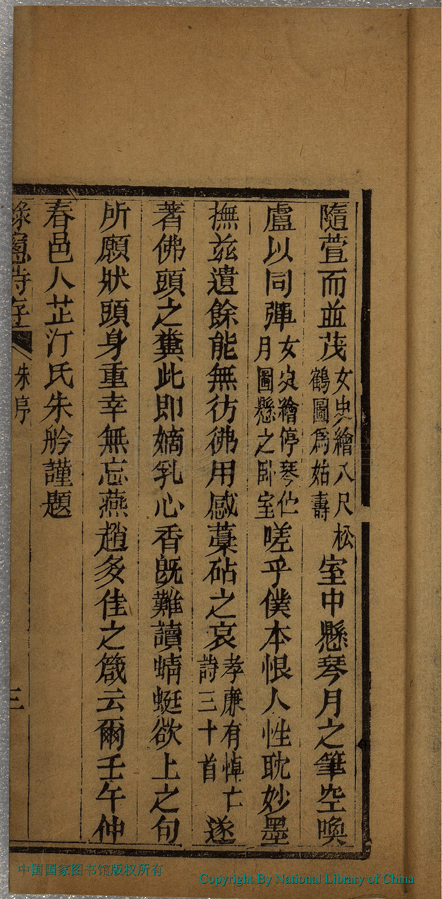 隨萱而並茂女史繪八尺松鶴圖爲姑壽室中懸琴月之筆空喚
盧以同彈女史繪停琴伫月圖懸之卧室嗟乎僕本恨人性耽妙墨
撫茲遺餘能無彷彿用感藁砧之哀孝廉有悼亡詩三十首遂
著佛頭之糞此即嫡乳心香旣難讀蜻蜓欲上之句
所願狀頭身重幸無忘燕趙多佳之箴云爾壬午仲
春邑人芷汀氏朱舲謹題
詩存 朱序 三
中国国家图书馆版权所有
Copyright By National Library of China